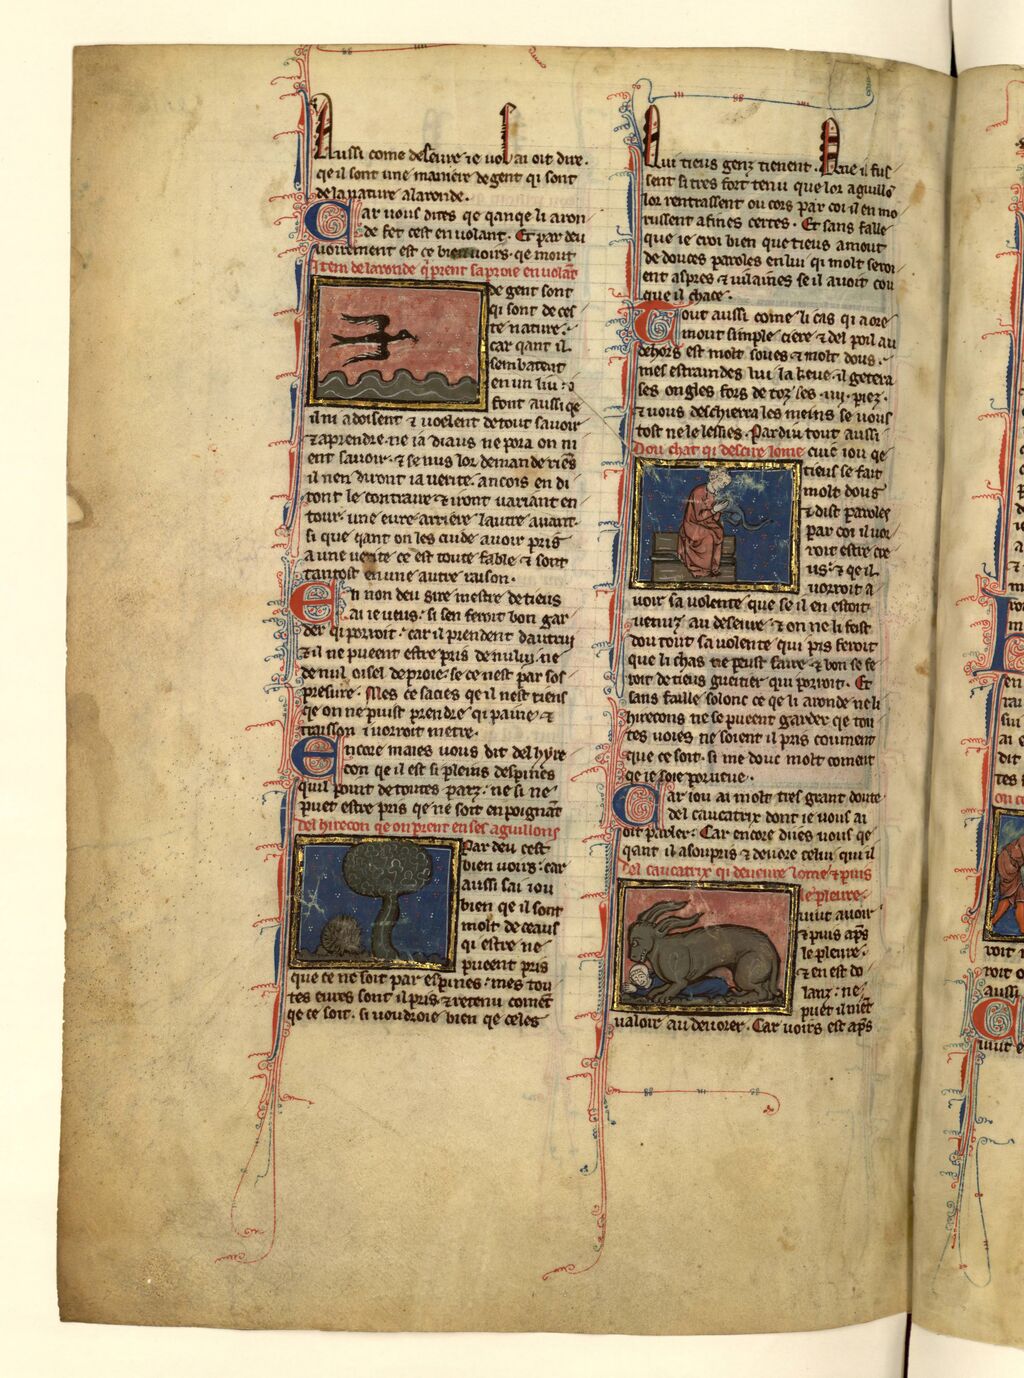 Aussi come deseure ie vos ai oit dire.
qe il sont une maniere de gent qi sont
de la nature a laronde.
Car uous dites qe qanqe li aron
de fet cest en uolant. Et par deu
uoirement est ce bien uoirs. qe mout
Item de laronde qi prent sa proie en uolant
de gent sont
qi sont de ces
te nature.
car qant il
sembatent
en un liu. i
font aussi qe
il ni adoisent & uoelent de tout sauoir
& aprendre. ne ia diaus ne pora on ni
ent sauoir. & se nus lor demande riens
il nen diront ia uerite. ancois en di
ront le contraire & iront uariant en
tour. une eure arriere lautre auant.
si que qant on les cuide auoir pris
a une uerite ce est toute fable & sont
tantost en une autre raison.
En non deu sire mestre de tieus
ai ie ueus. si sen feroit bon gar
der qi porroit. car il prendent dautrui
& il ne pueent estre pris de nului ne
de nul oisel de proie. se ce nest par sos
presure. Mes ce sacies qe il nest riens
qe on ne puist prendre qi paine &
traison i uorroit metre.
Encore maies uous dit del hyre
con qe il est si pleins despines
quil point de toutes parz. ne si ne
puet estre pris qe ne soit en poignant
del hirecon qe on prent en ses aguillons
Par deu cest
bien uoirs. car
aussi sai iou
bien qe il sont
molt de ceaus
qi estre ne
pueent pris
que ce ne soit par espines. mes tou
tes eures sont il pris & retenu coment
qe ce soit. si uoudroie bien qe celes
qui tieus genz tienent. Que il fus
sent si tres fort tenu que lor aguillo
lor rentrassent ou cors par coi il en mo
russent a fines certes. Et sans faille
que ie croi bien que tieus amout
de douces paroles en lui qi molt seroi
ent aspres & uilaines se il auoit cou
que il chace.
Tout aussi come li cas qi a ore
mout simple ciere & del poil au
dehors est molt soues & molt dous.
mes estraindes lui la keue. il getera
ses ongles fors de toz ses .iiii. piez.
& uous deschierra les meins se uous
tost ne le lessies. Par diu tout aussi
Dou chat qi descire lome cuic iou qe
tieus se fait
molt dous
& dist paroles
par coi il uor
roit estre cre
us. & qe il
uorroit a
uoir sa uolente que se il en estoit
uenuz au deseure & on ne li feist
dou tout sa uolente qui pis feroit
que li chas ne puist faire. & bon se fe
roit de tieus gueitier qui porroit. Et
sans faille solonc ce qe li aronde ne li
hirecons ne se pueent garder qe tou
tes uoies ne soient il pris comment
que ce soit. si me douc molt coment
qe ie soie porueue.
Car iou ai molt tres grant doute
del caucatrix dont ie uous ai
oit parler. Car encore dites uous qe
qant il a soupris & deuore celui qui il
Del caucatrix qi deueure lome & puis
le pleure.
uiut auoir
& puis aps
le pleure.
& en est do
lanz. ne
puet il met
ualoir au deuorer. Car uoirs est aps